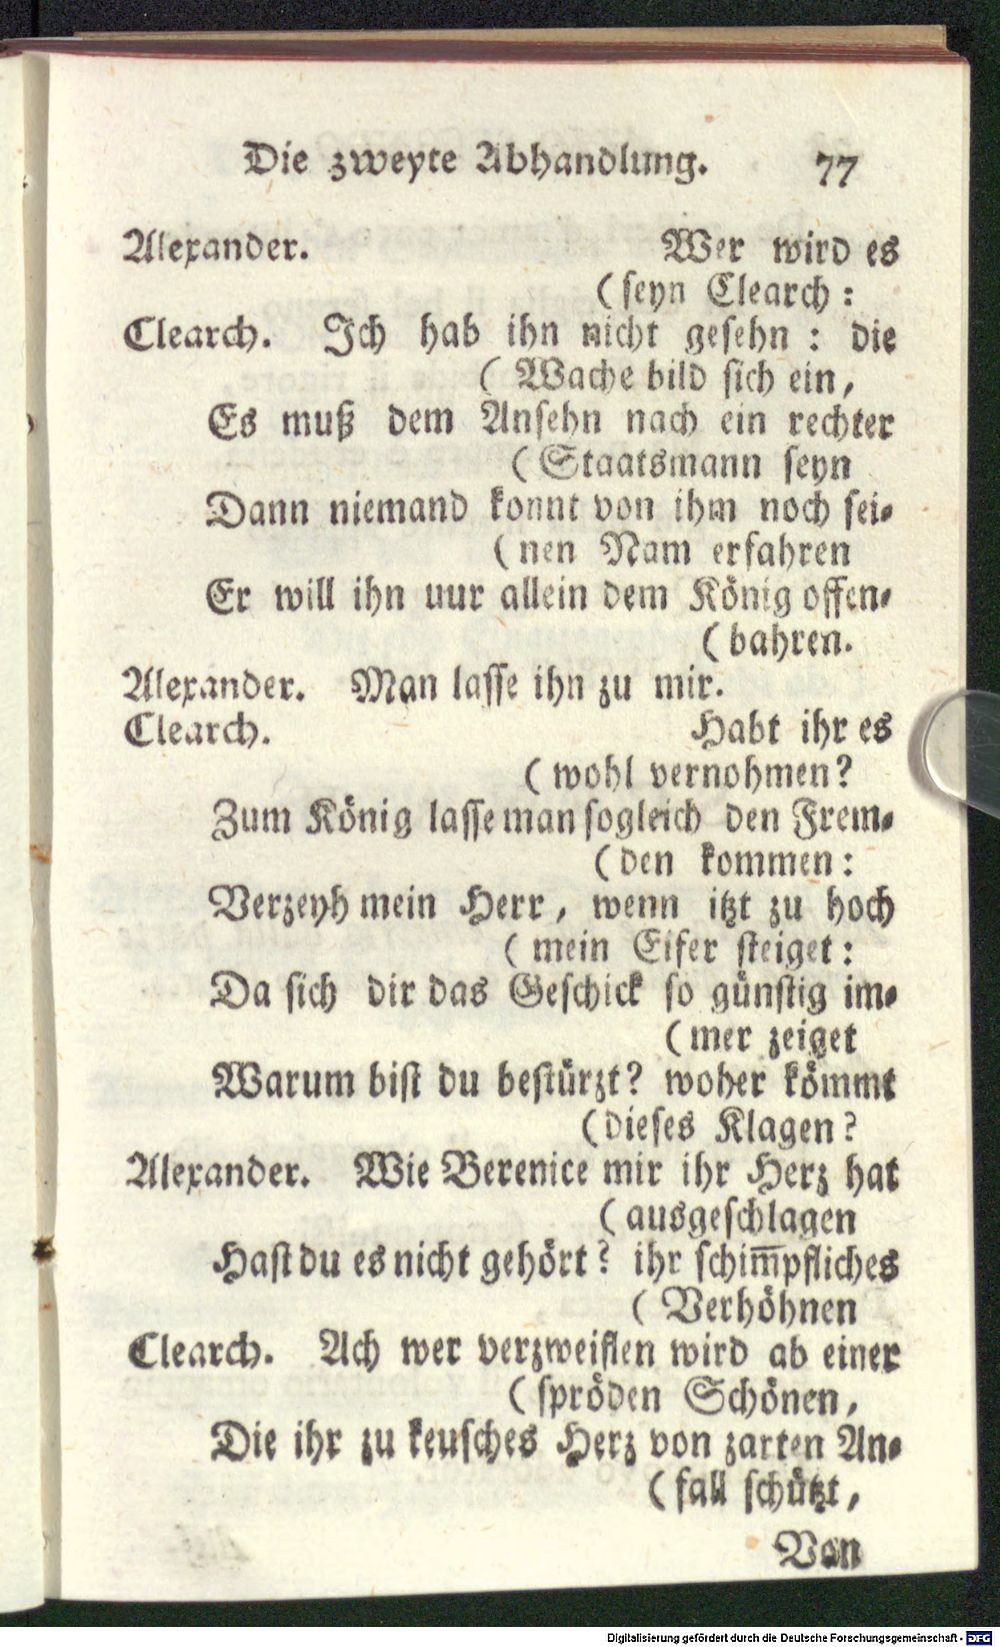 Die zweyte Abhandlung. 77
Alexander. Wer wird es
(seyn Clearch:
Clearch. Ich hab ihn nicht gesehn: die
(Wache bild sich ein,
Es muß dem Ansehn nach ein rechter
(Staatsmann seyn
Dann niemand konnt von ihm noch sei-
(nen Nam erfahren
Er will ihn uur allein dem König offen-
(bahren.
Alexander. Man lasse ihn zu mir.
Clearch. Habt ihr es
(wohl vernohmen?
Zum König lasse man sogleich den Frem-
(den kommen:
Verzeyh mein Herr, wenn itzt zu hoch
(mein Eifer steiget:
Da sich dir das Geschick so günstig im-
(mer zeiget
Warum bist du bestürzt? woher kömmt
(dieses Klagen?
Alexander. Wie Berenice mir ihr Herz hat
(ausgeschlagen
Hast du es nicht gehört? ihr schim̅pfliches
(Verhöhnen
Clearch. Ach wer verzweiflen wird ab einer
(spröden Schönen,
Die ihr zu keusches Herz von zarten An-
(fall schützt,
Von
Digitalisierung gefördert durch die Deutsche Forschungsgemeinschaft - DFG